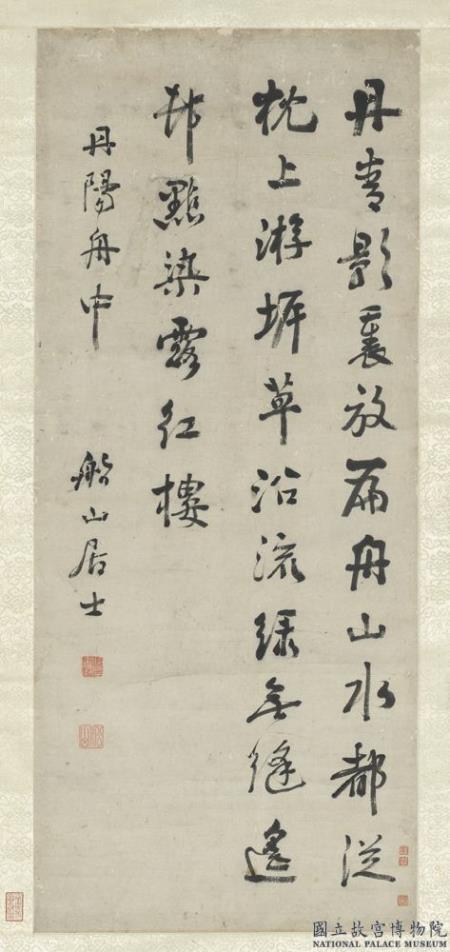 丹青影裏放扁舟山水都從
枕上游坼草沿流綠無縫遙
邨點染露紅樓
丹陽舟中
船山居士
國立故宮博物院
NATIONAL PALACE MUSEUM